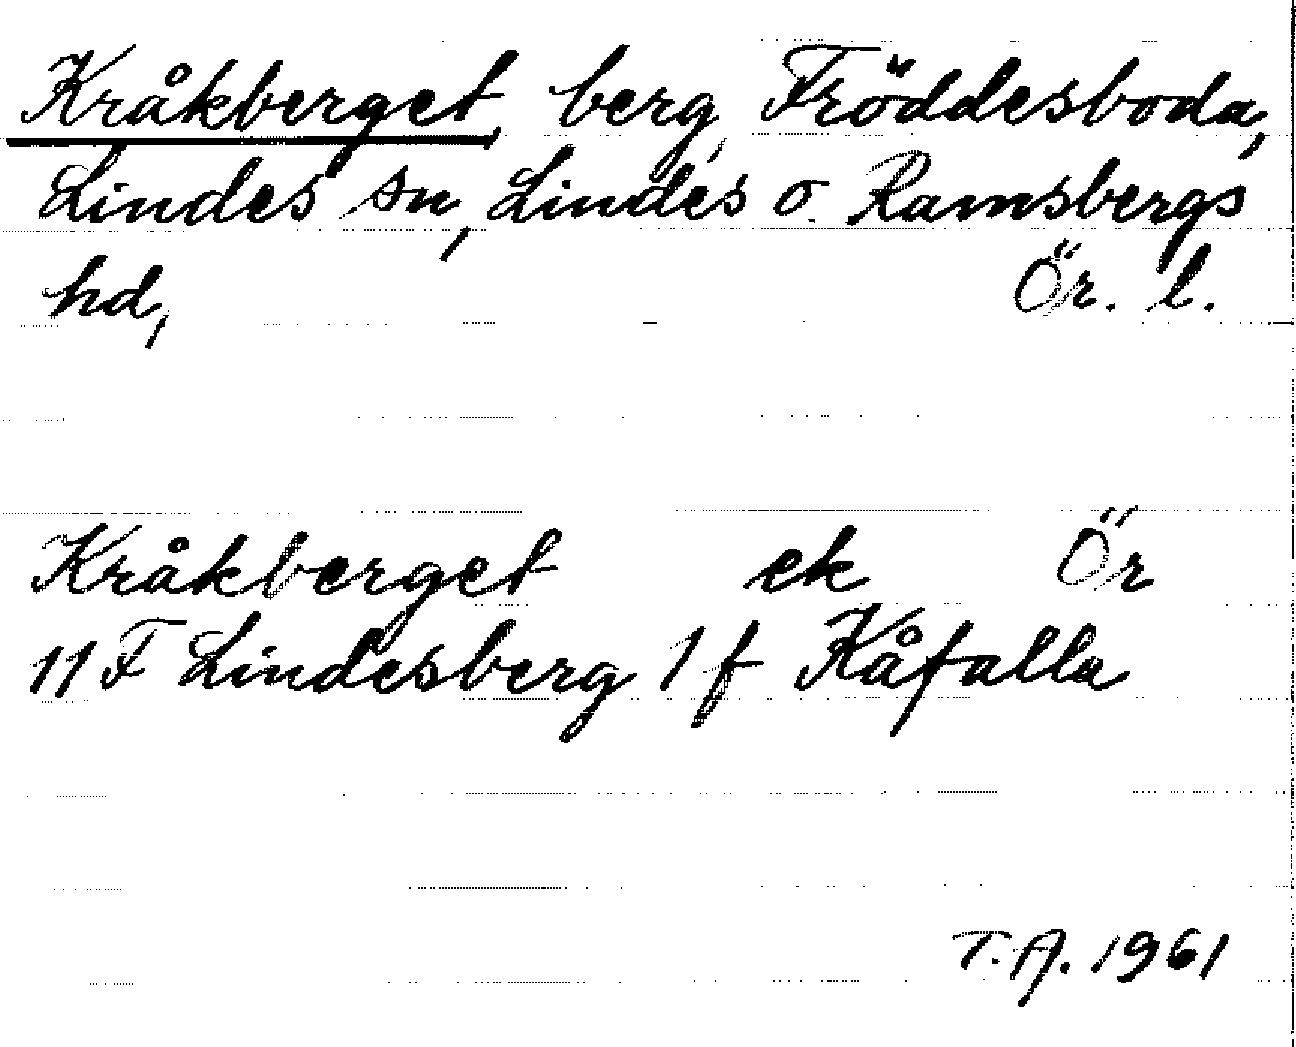 Kråkberget, berg, Fröddesboda,
Lindes sn, Lindes o. Ramsbergs
hd, Ör. l.
Kråkberget ek Ör
11 F Lindesberg 1 f Kåfalla
T.A. 1961